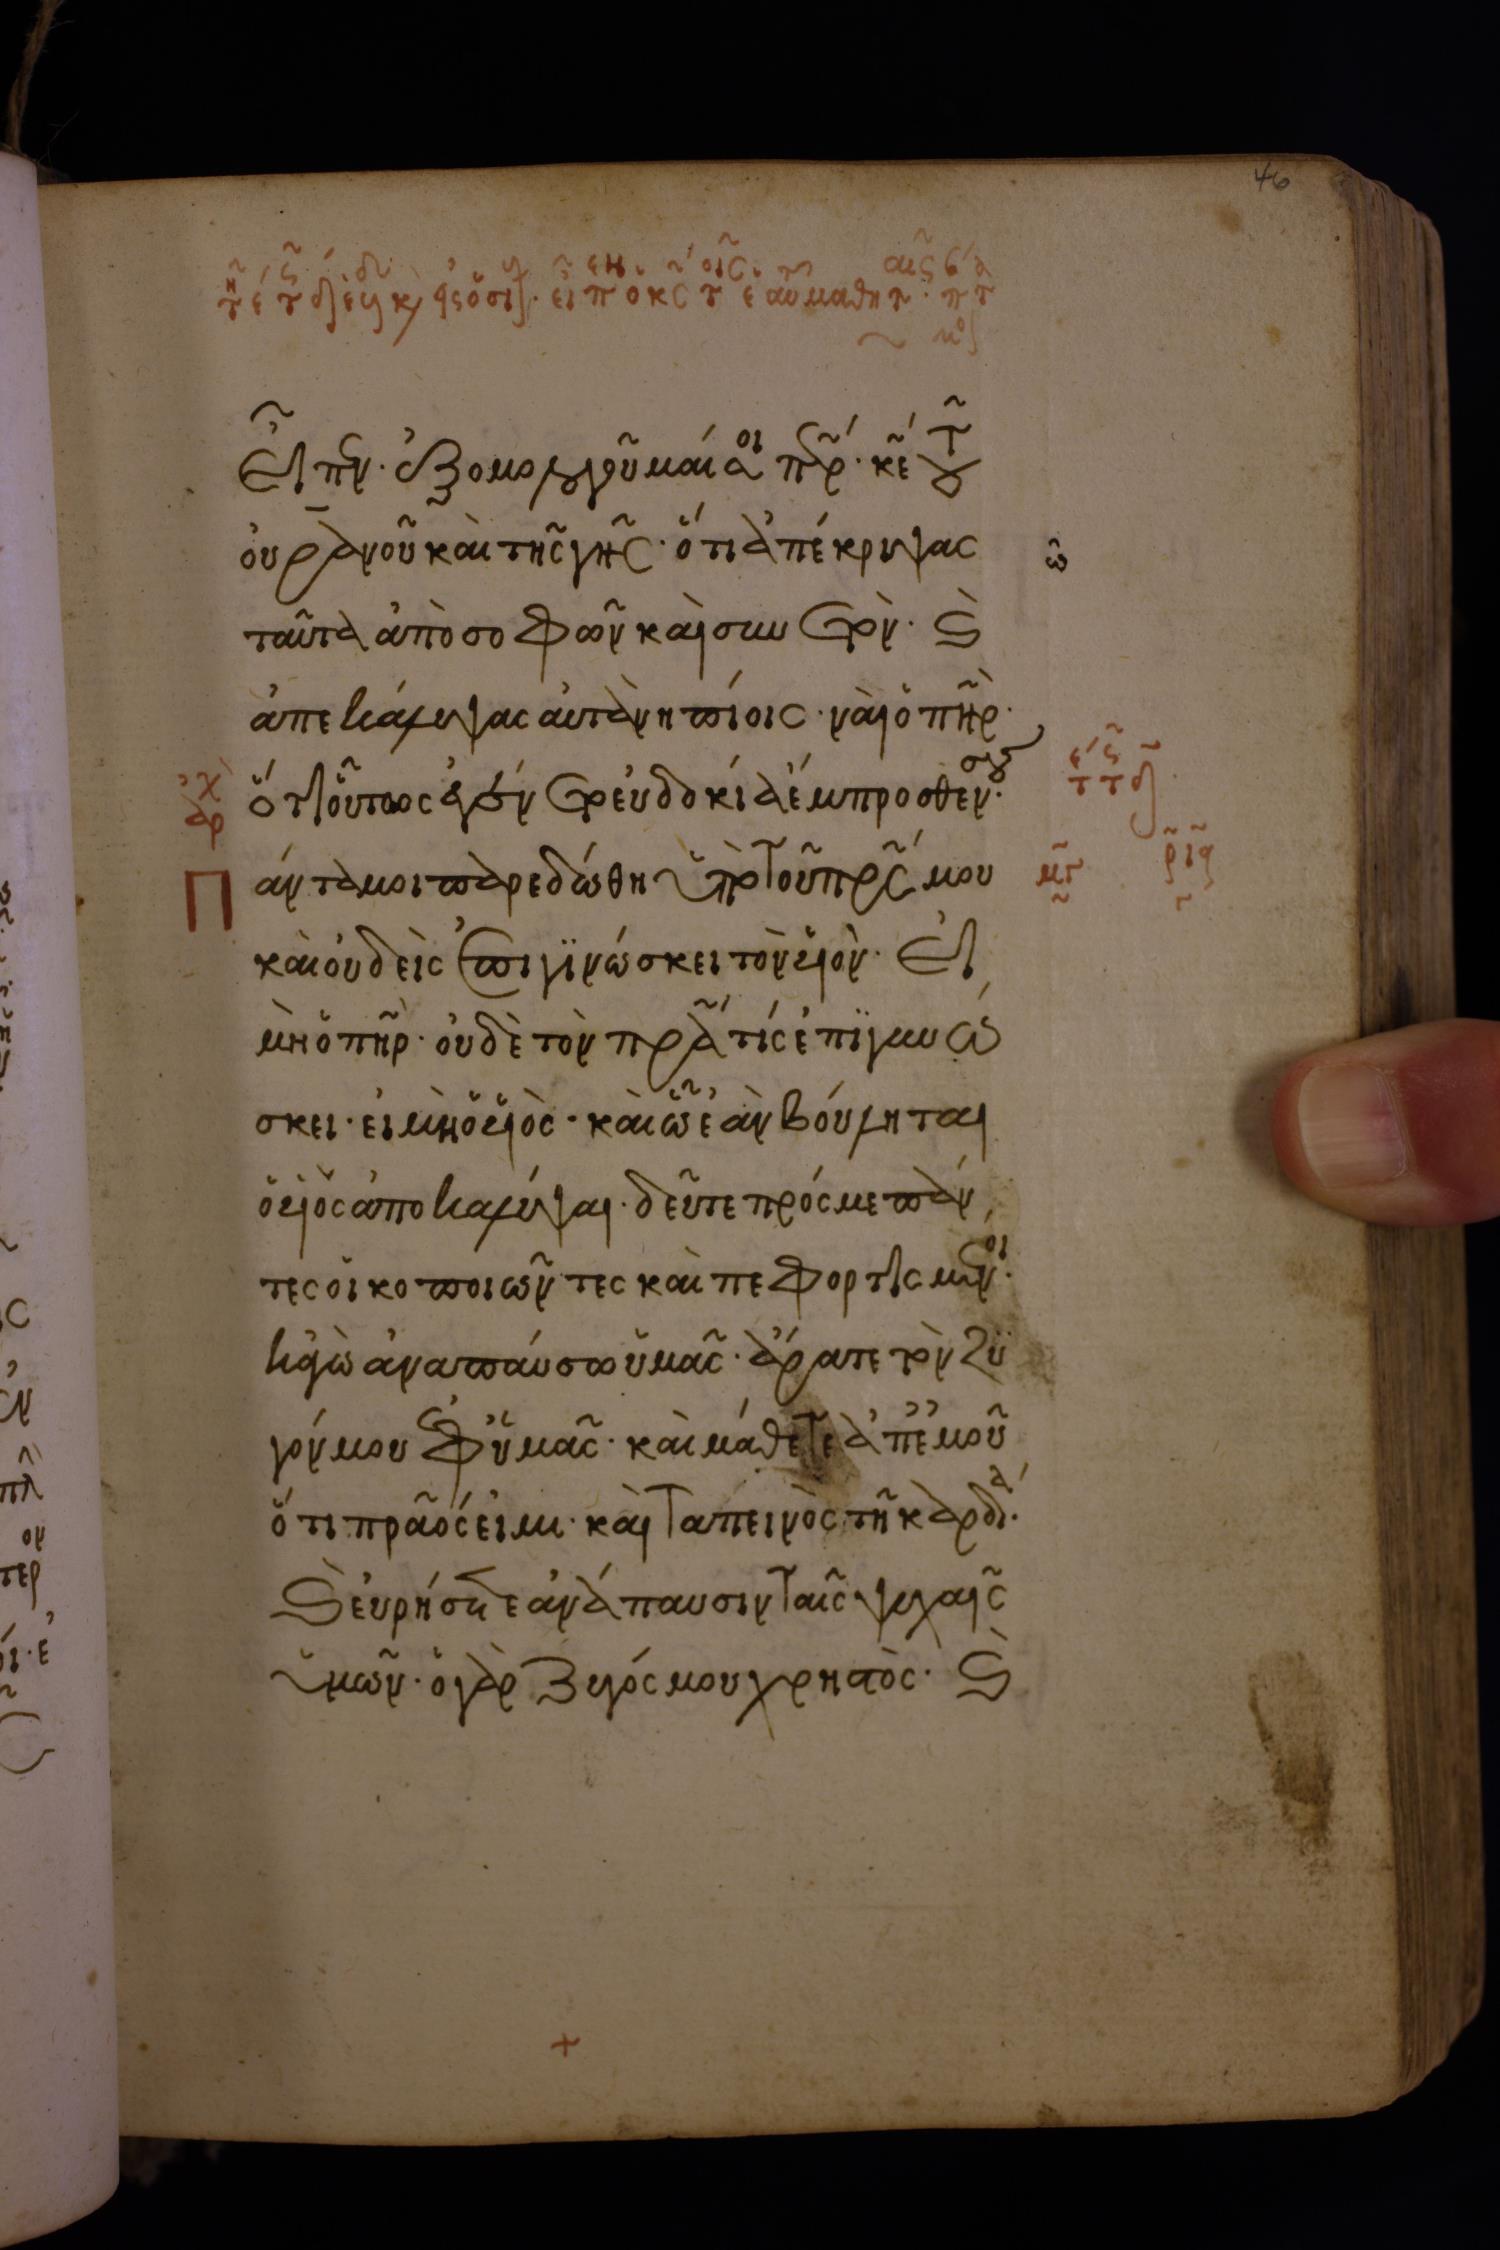 46
εἶπεν· ἐξομολογοῦμαί σοι περ· κε τοῦ
οὐρανοῦ καὶ τῆς γῆς· ὅτι ἀπέκρυψας
ταῦτα ἀπὸ σοφῶν καὶ συνετῶν· καὶ
ἀπεκάλυψας αὐτὰ νηπίοις· ναὶ ὁ πηρ·
ὅτι οὕτως ἐγένετο εὐδοκία ἔμπροσθέν σου·
Πάντα μοι παρεδώθη ὑπὸ τοῦ πρς μου
καὶ οὐδεὶς ἐπιγινώσκει τὸν υἱὸν· εἰ
μὴ ὁ πηρ· οὐδὲ τὸν πρα τίς ἐπιγινώ
σκει· εἰ μὴ ὁ υἱὸς· καὶ ὧ ἐὰν βούληται
ὁ υἱὸς ἀποκαλύψαι· δεῦτε πρός με πάν
τες οἱ κοπιῶντες καὶ πεφορτισμένοι·
κἀγὼ ἀναπαύσω ὑμᾶς· ἄρατε τὸν ζυ
γόν μου ἐφ ὑμᾶς· καὶ μάθετε ἀπ ἐμοῦ
ὅτι πρᾶός εἰμι· καὶ ταπεινὸς τῇ καρδία·
καὶ εὑρήσετε ἀνάπαυσιν ταῖς ψυχαῖς
ὑμῶν· ὁ γὰρ ζυγός μου χρηστὸς· καὶ